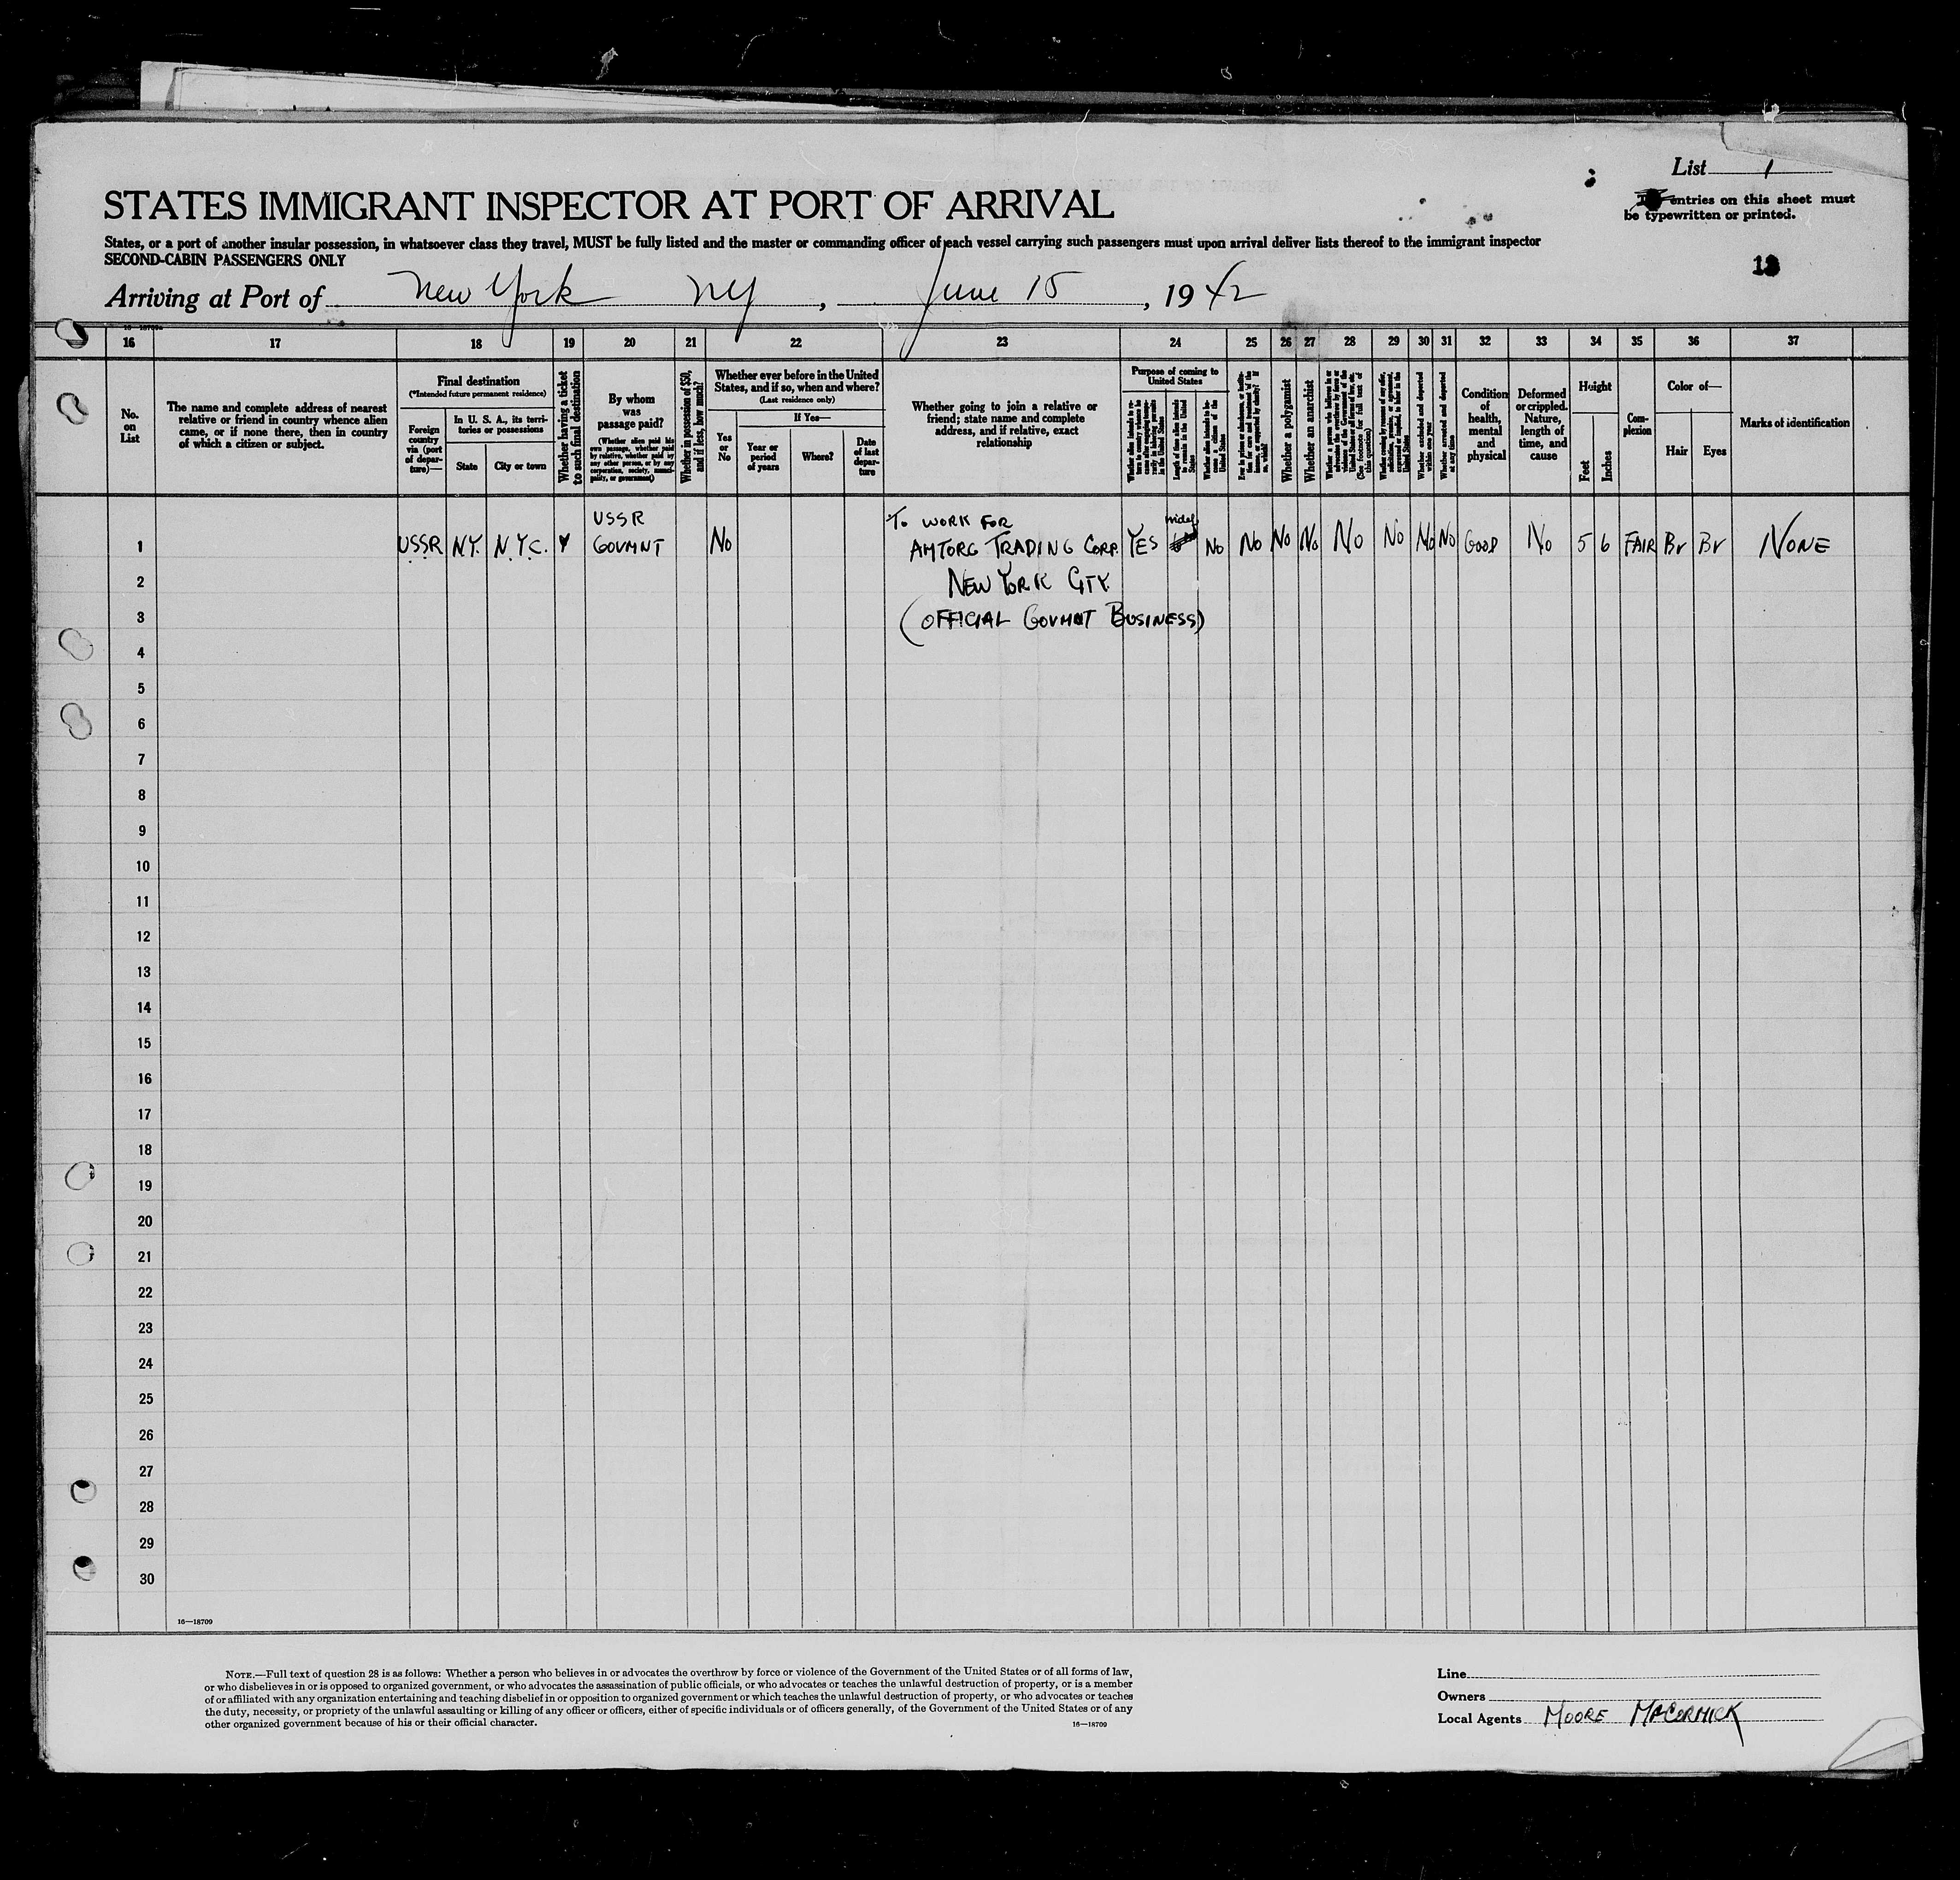 List 1
entries on this sheet must
be typewritten or printed.
STATES IMMIGRANT INSPECTOR AT PORT OF ARRIVAL
States, or a port of another insular possession, in whatsoever class they travel, MUST be fully listed and the master or commanding officer of each vessel carrying such passengers must upon arrival deliver lists thereof to the immigrant inspector
SECOND-CABIN PASSENGERS ONLY
Arriving at Port of New York NY, June 15, 1942
16 17 18 19 20 21 22 23 24 25 26 27 28 29 30 31 32 33 34 35 36 37
No.
on
List
The name and complete address of nearest
relative or friend in country whence alien
came, or if none there, then in country
of which a citizen or subject.
Final destination
(*Intended future permanent residence)
Foreign
country
via (port
of depar-
ture)—
In U. S. A., its terri-
tories or possessions
State
City or town
Whether having a ticket
to such final destination
By whom
was
passage paid?
(Whether alien paid his
own passage, whether paid
by relative, whether paid by
any other person, or by any
corporation, society, munici-
pality, or government)
Whether in possession of $50,
and if less, how much?
Whether ever before in the United
States, and if so, when and where?
(Last residence only)
Yes
or
No
If Yes—
Year or
period
of years
Where?
Date
of last
depar-
ture
Whether going to join a relative or
friend; state name and complete
address, and if relative, exact
relationship
Purpose of coming to
United States
Length of time alien intends
to remain in the United
States
Whether alien intends to be-
come a citizen of the
United States
Whether a polygamist
Whether an anarchist
Whether excluded and deported
within one year
Whether arrested and deported
at any time
Condition
of
health,
mental
and
physical
Deformed
or crippled.
Nature,
length of
time, and
cause
Height
Feet
Inches
Com-
plexion
Color of—
Hair
Eyes
Marks of identification
1 USSR N.Y. N.Y.C. USSR GOVMNT No To WORK FOR YES No No No No No No No No GOOD No 5 6 FAIR Br Br NONE
AMTORG TRADING CORP.
2 NEW YORK CITY.
3 (OFFICIAL GOVMNT BUSINESS)
4
5
6
7
8
9
10
11
12
13
14
15
16
17
18
19
20
21
22
23
24
25
26
27
28
29
30
16—18709
NOTE.—Full text of question 28 is as follows: Whether a person who believes in or advocates the overthrow by force or violence of the Government of the United States or of all forms of law,
or who disbelieves in or is opposed to organized government, or who advocates the assassination of public officials, or who advocates or teaches the unlawful destruction of property, or is a member
of or affiliated with any organization entertaining and teaching disbelief in or opposition to organized government or which teaches the unlawful destruction of property, or who advocates or teaches
the duty, necessity, or propriety of the unlawful assaulting or killing of any officer or officers, either of specific individuals or of officers generally, of the Government of the United States or of any
other organized government because of his or their official character.
16—18709
Line
Owners
Local Agents MOORE McCORMICK